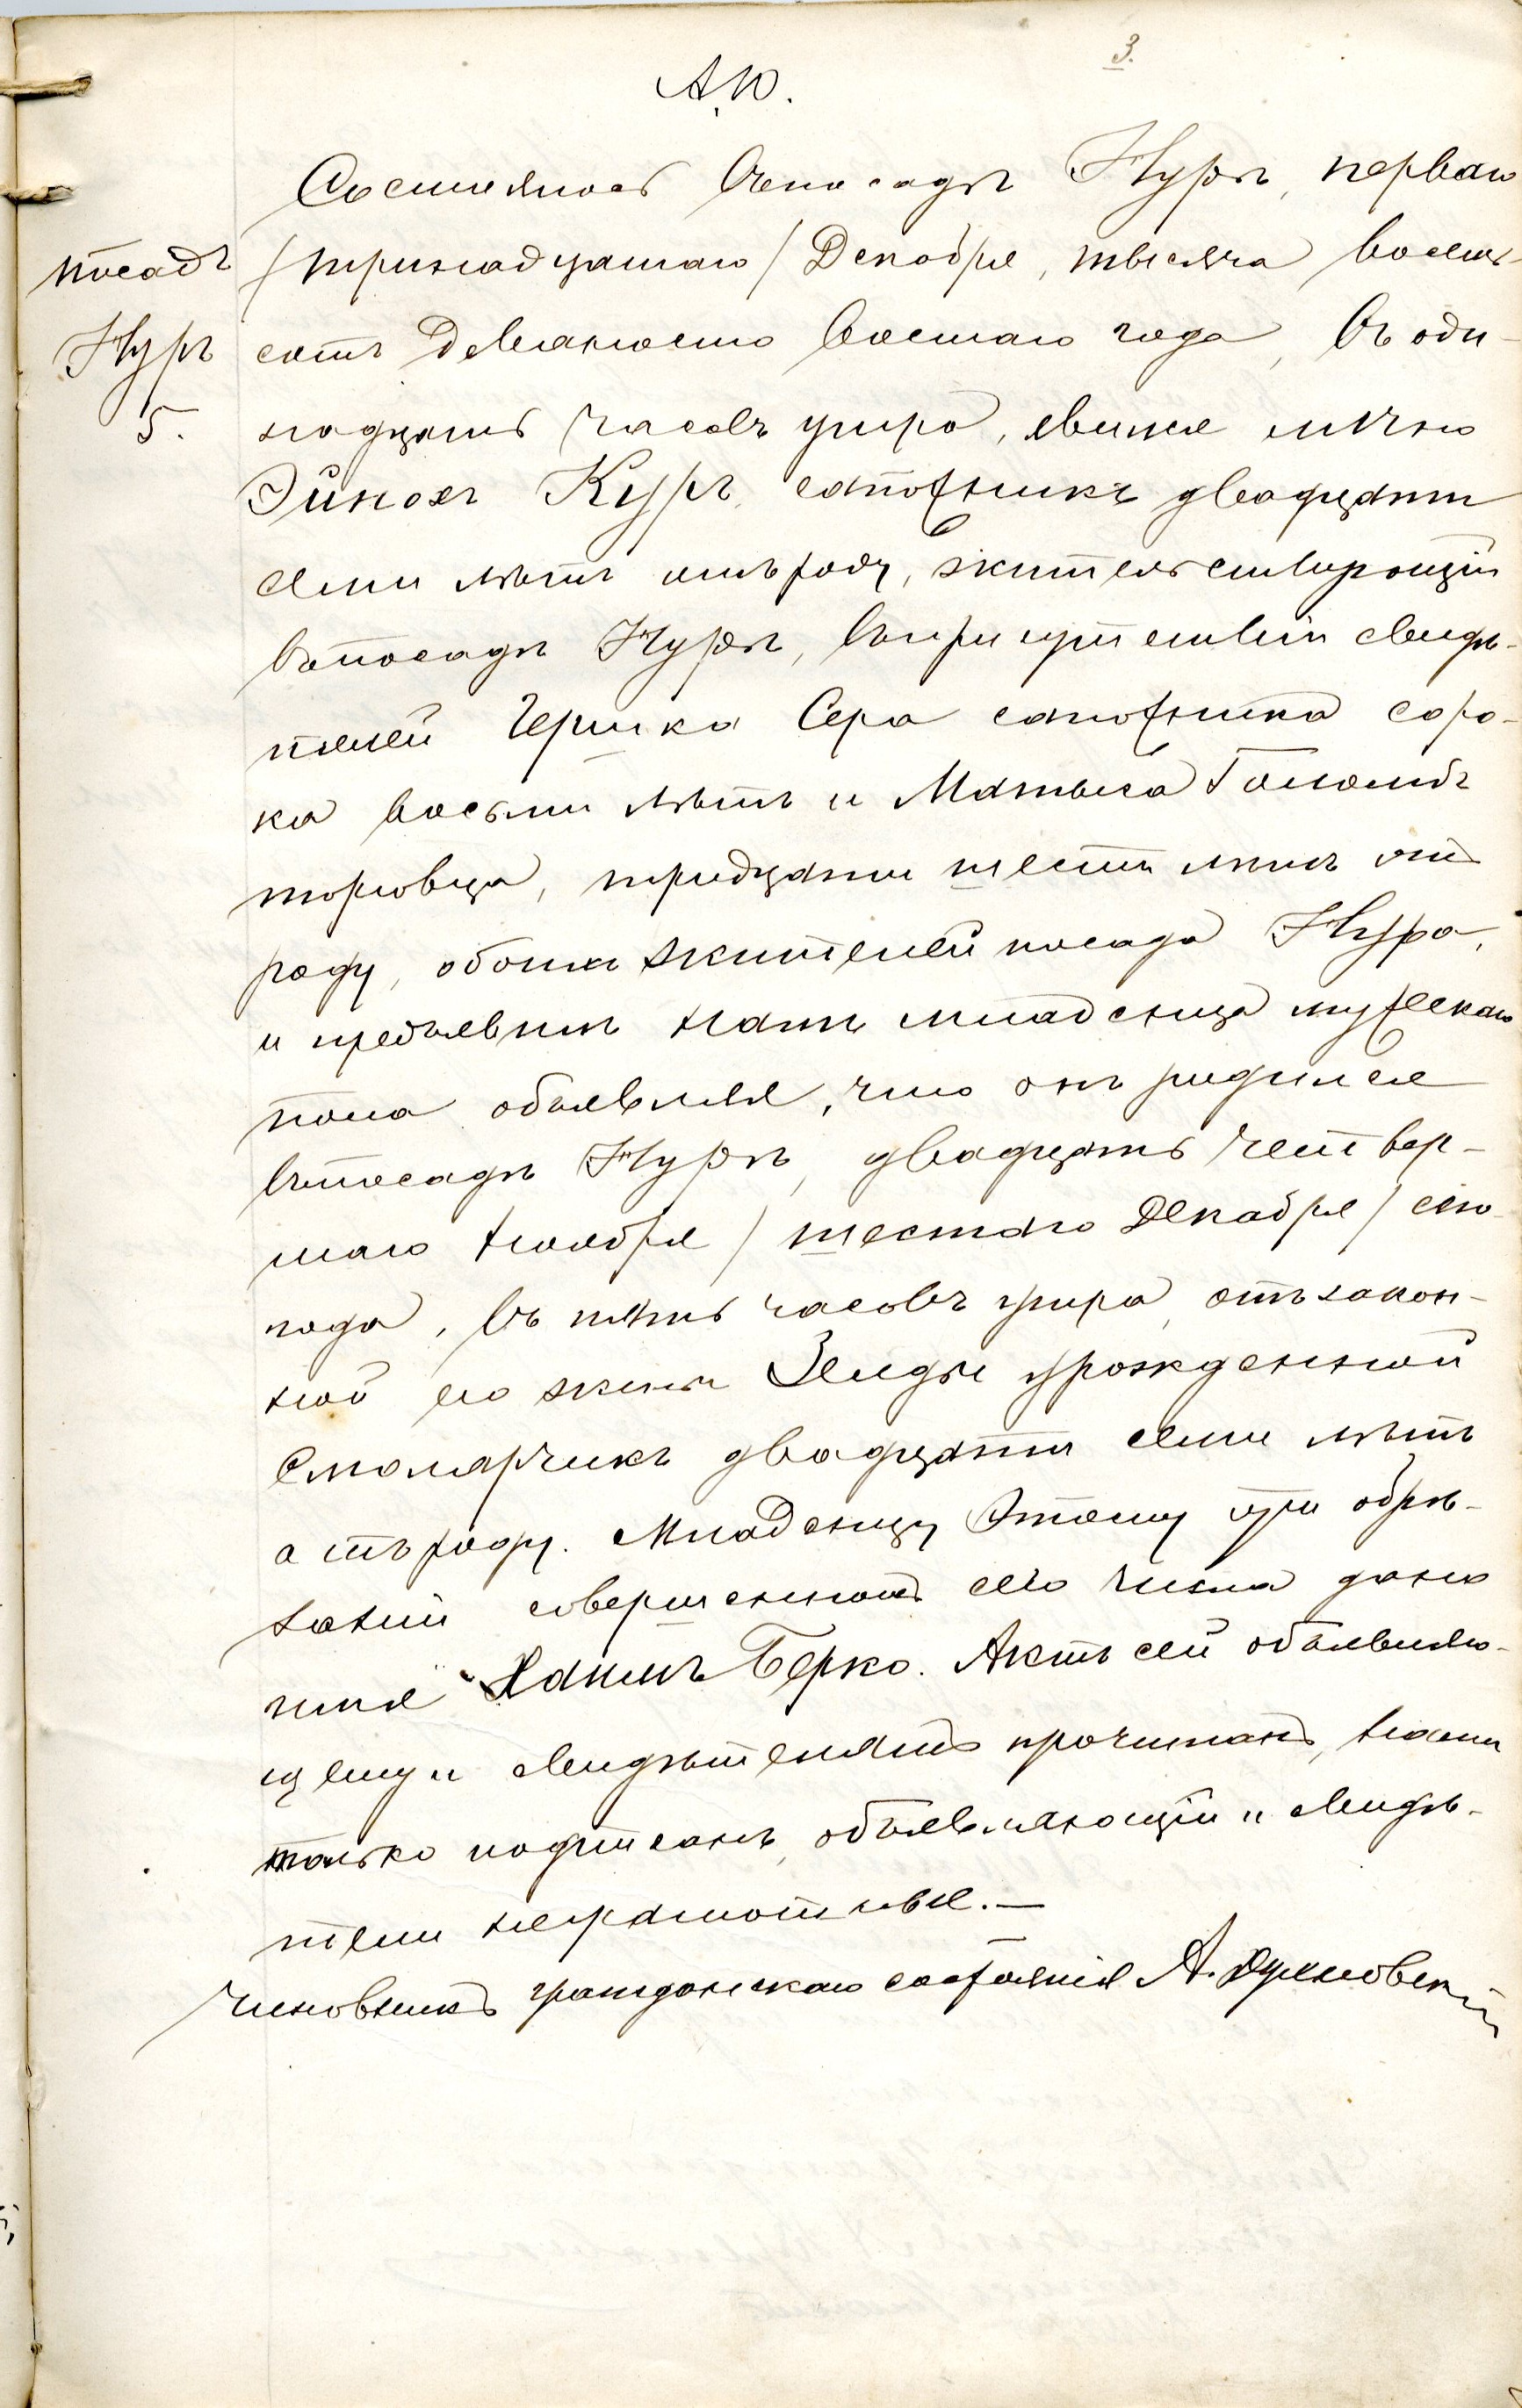 3.
А.Ю.
Состоялось въ посадѣ Нурѣ, перваго
посадъ
/тринадцатаго/ Декабря, тысяча восемь-
Нуръ
сотъ девяносто восьмаго года, въ оди-
5.
надцать часовъ утра, явился лично
Эйнохъ Куръ, сапожникъ двадцати
семи лѣтъ отъ роду, жительствующій
въ посадѣ Нурѣ, въ присутствіи свидѣ-
телей Гершка Сера сапожника соро-
ка восьми лѣтъ и Матыса
торговца, тридцати шести лѣтъ отъ
роду, обоихъ жителей посада Нура,
и предъявилъ намъ младенца мужескаго
пола объявляя, что онъ родился
въ посадѣ Нурѣ, двадцать четвер-
таго Ноября /шестаго Декабря/ сего
года, въ пять часовъ утра, отъ закон-
ной его жены Зелды урожденной
Смолярчикъ двадцати семи лѣтъ
отъ роду. Младенцу этому при обрѣ-
заніи совершенномъ сего числа дано
имя Хаимъ Берко. Актъ сей объявляю-
щему и свидѣтелямъ прочитанъ, нами
только подписанъ, объявляющій и свидѣ-
тели неграмотные.—
Чиновникъ гражданскаго состоянія А.